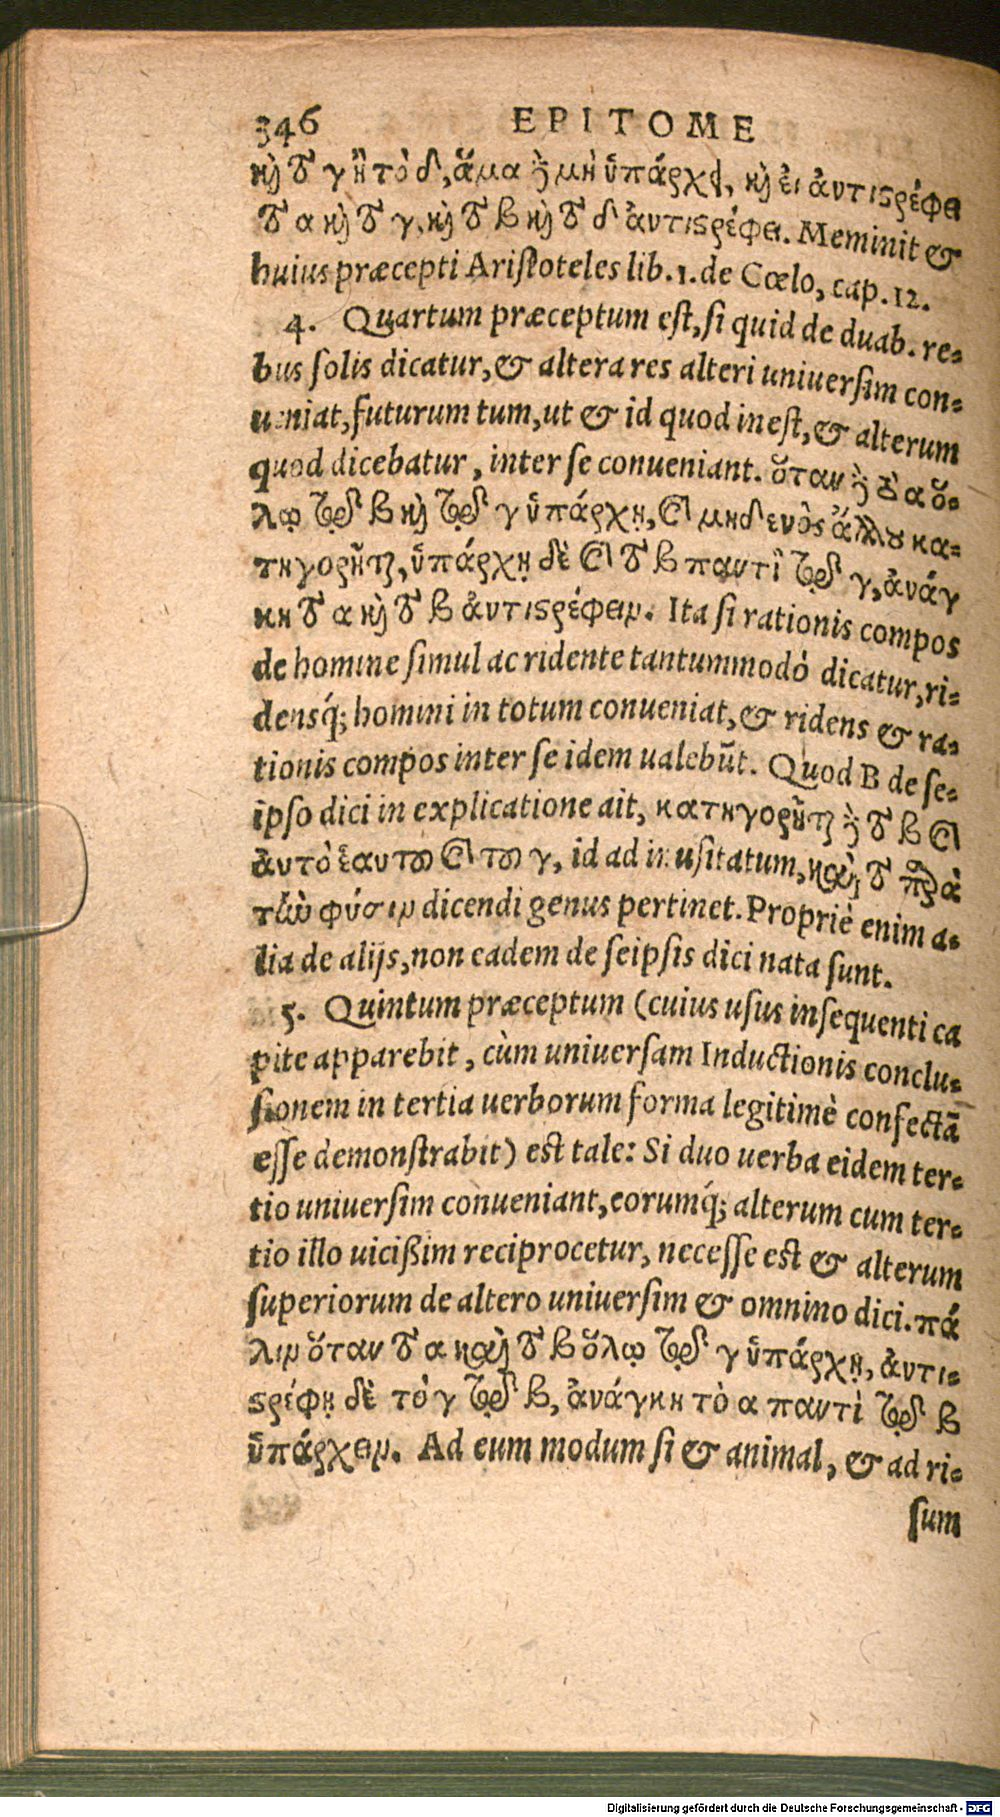 346 EPITOME
καὶ τὸ γ ἢ τὸ δ, ἅμα δὲ μὴ ὑπάρχει, καὶ εἰ ἀντιστρέφει
τὸ α καὶ τὸ γ, καὶ τὸ β καὶ τὸ δ ἀντιστρέφει. Meminit &
huius præcepti Aristoteles lib. 1. de Cœlo, cap. 12.
4. Quartum præceptum est, si quid de duab. re-
bus solis dicatur, & altera res alteri uniuersim con-
ueniat, futurum tum, ut & id quod inest, & alterum
quod dicebatur, inter se conueniant. ὅταν δὲ τὸ α ὅ-
λῳ τῷ β καὶ τῷ γ ὑπάρχῃ, καὶ μηδενὸς ἄλλου κα-
τηγορῆται, ὑπάρχῃ δὲ καὶ τὸ β παντὶ τῷ γ, ἀνάγ
κη τὸ α καὶ τὸ β ἀντιστρέφειν. Ita si rationis compos
de homine simul ac ridente tantummodò dicatur, ri-
densq́; homini in totum conueniat, & ridens & ra-
tionis compos inter se idem ualebũt. Quod B de se-
ipso dici in explicatione ait, κατηγορεῖται δὲ τὸ β καὶ
αὐτὸ ἑαυτοῦ καὶ τοῦ γ, id ad inusitatum, καὶ τὸ παρὰ
τὴν φύσιν dicendi genus pertinet. Propriè enim a-
lia de alijs, non eadem de seipsis dici nata sunt.
5. Quintum præceptum (cuius usus insequenti ca
pite apparebit, cùm uniuersam Inductionis conclu-
sionem in tertia uerborum forma legitimè confectã
esse demonstrabit) est tale: Si duo uerba eidem ter-
tio uniuersim conueniant, eorumq́; alterum cum ter-
tio illo uicißim reciprocetur, necesse est & alterum
superiorum de altero uniuersim & omnino dici. πά
λιν ὅταν τὸ α καὶ τὸ β ὅλῳ τῷ γ ὑπάρχῃ, ἀντι-
στρέφῃ δὲ τὸ γ τῷ β, ἀνάγκη τὸ α παντὶ τῷ β
ὑπάρχειν. Ad eum modum si & animal, & ad ri-
sum
Digitalisierung gefördert durch die Deutsche Forschungsgemeinschaft - DFG